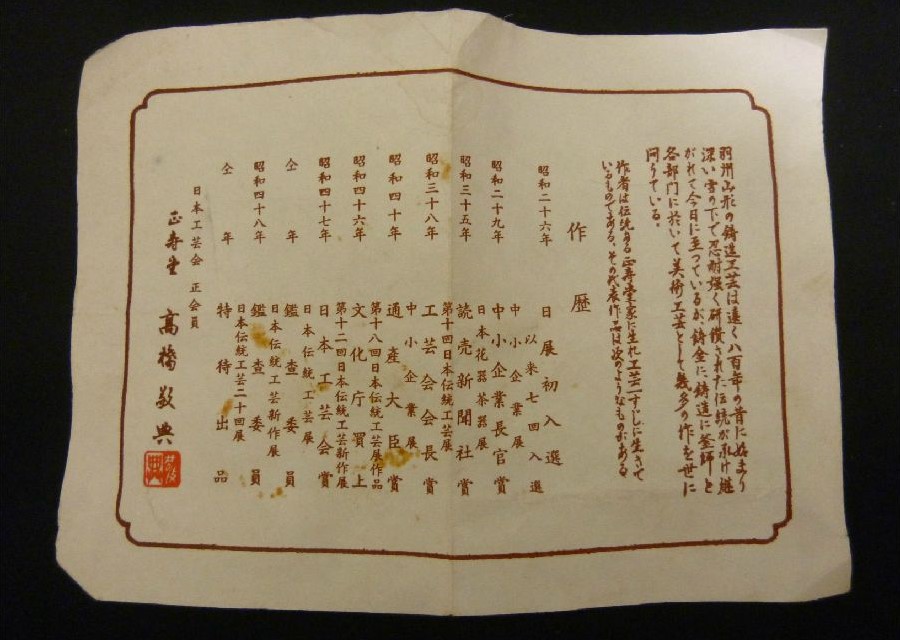 羽州山形の鋳造工芸は遠く八百年の昔に始まり
深い雪の下で忍耐強く研鑽された伝統が承け継
がれて今日に至っているが、鋳金に鋳造に釜師と
各部門に於いて美術工芸として幾多の作を世に
問うている。
作者は伝統ある正寿堂家に生れ工芸一すじに生きて
いるものである。その代表作品は次のようなものがある
作歴
昭和二十六年 日展初入選
以来七回入選
昭和二十九年 中小企業展
中小企業長官賞
昭和三十五年 日本花器茶器展
読売新聞社賞
昭和三十八年 第十回日本伝統工芸展
工芸会会長賞
昭和四十年 中小企業展
通産大臣賞
昭和四十六年 第十八回日本伝統工芸展作品
文化庁買上
昭和四十七年 第十二回日本伝統工芸新作展
日本工芸会賞
仝年 日本伝統工芸展
鑑査委員
昭和四十八年 日本伝統工芸新作展
鑑査委員
仝年 日本伝統工芸二十回展
特待出品
日本工芸会 正会員
正寿堂 高橋敬典